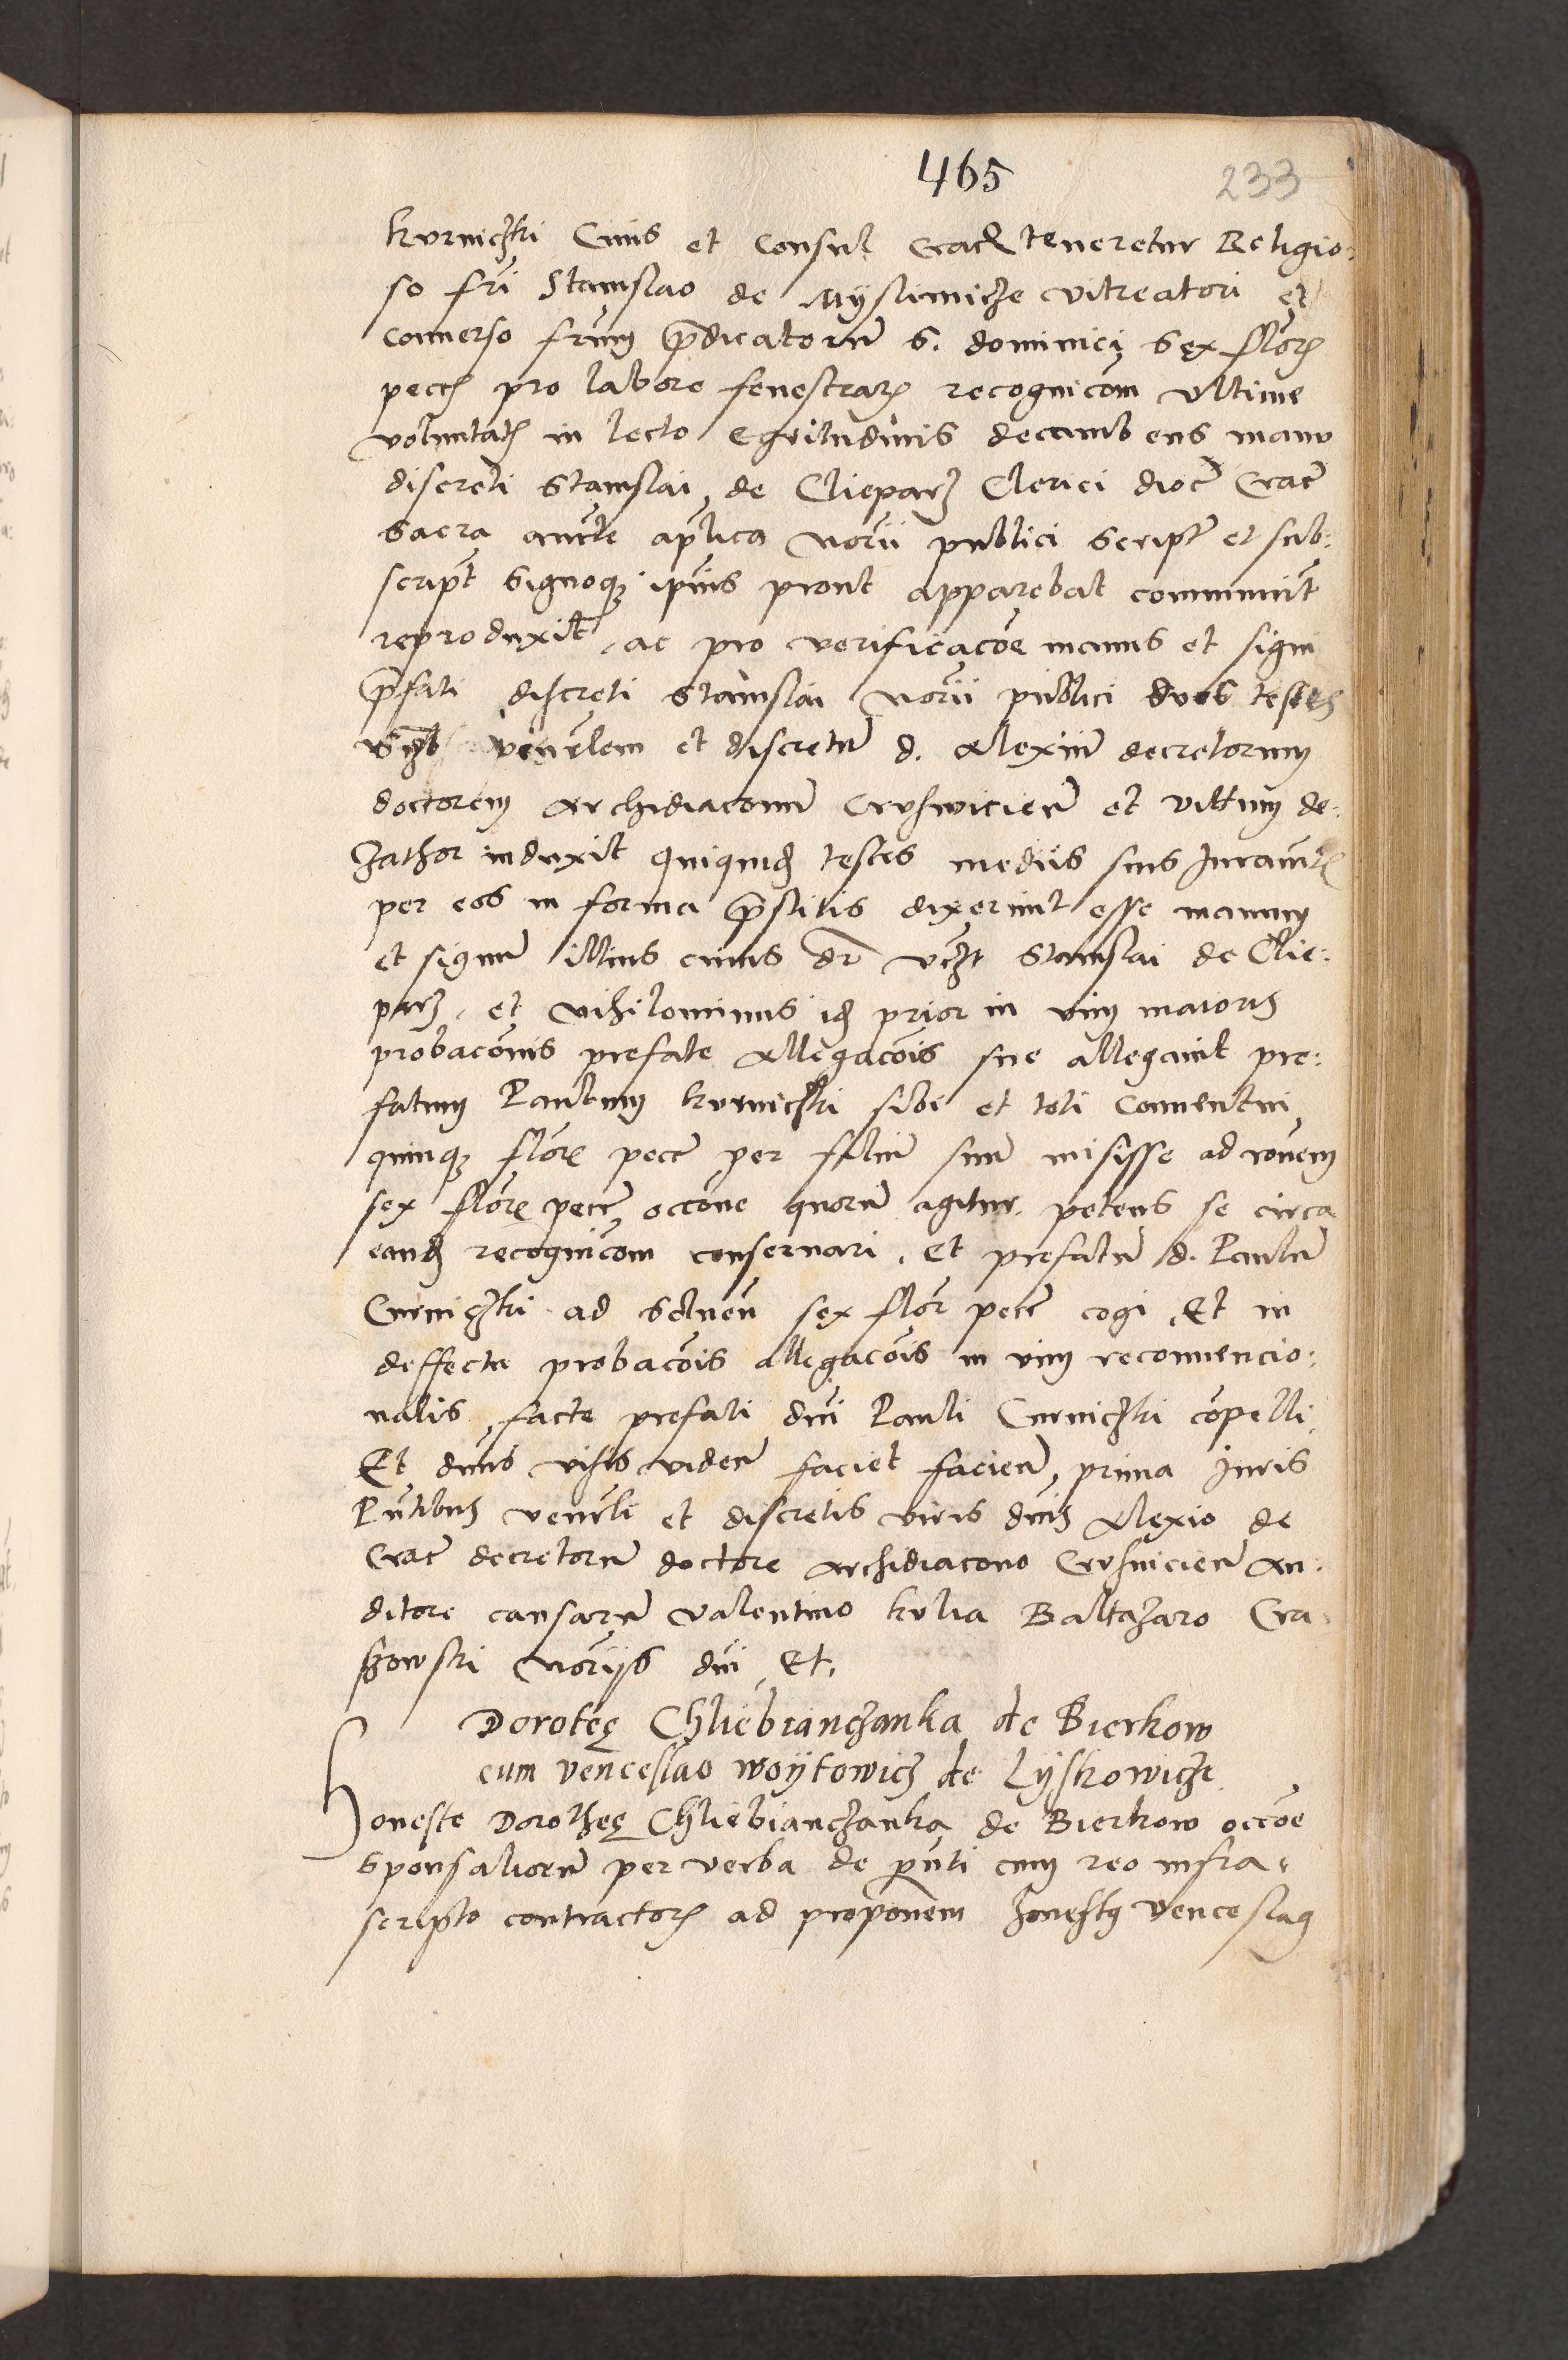 465 233
kvrniczki Ciuis et Consul Crac teneretur Religio:
so fri Stanislao de Myslimicze vitreatori et
conuerso frum predicatorum S. dominici sex flor
pecc pro labore fenestrar recognicom vltime
voluntat in lecto egritudinis decumbens manu
discreti Stanislai de Clieparz Clerici dioc Crac
sacra aucte aplica norii publici script et sub:
script signoqz ipius prout apparebat communit
reproduxit, ac pro verificacoe manus et signi
prefati discreti Stanislai norii publici duos testes
vzlt venrlem et discretum d. Alexium decretorum
doctorem Archidiaconum Crusvicien et vittum de
Zathor induxit quiquid testes mediis suis Iuramt
per eos in forma prestitis dixerunt esse manum
et signum illius cuius dr vzlt Stanislai de Clie:
parz, et nihilominus id prior in vim maioris
probaconis prefate Allegacois sue allegauit pre:
fatum Paulum kurniczki sibi et toti Conuentui
quinqz flor pecc per filium suum misisse ad rouem
sex flor pecc occone quorum agitur. petens se circa
eand recognicom conseruari, Et prefatum d. Paulum
Curniczki ad soluen sex flor pecc cogi, Et in
deffectu probacois allegacois in vim reconuencio:
nalis, facte prefati dni Pauli Curniczki copelli,
Et dnus visis viden faciet facien, prima Iuris
Pntibus venrli et discretis viris dnis Alexio de
Crac decretorum doctore Archidiacono Crusuicien Au:
ditore causarum Valentino kulia Baltazaro Cra
szowski Noriis dni Et.
Dorotee Chliebianczanka de Bierkow
cum venceslao woytowicz de Lyskowicze
Honeste Dorothee Chliebianczanka de Bierkow occoe
sponsaliorum per verba de pnti cum reo infra:
scripto contractor ad proponem honestus Venceslaus